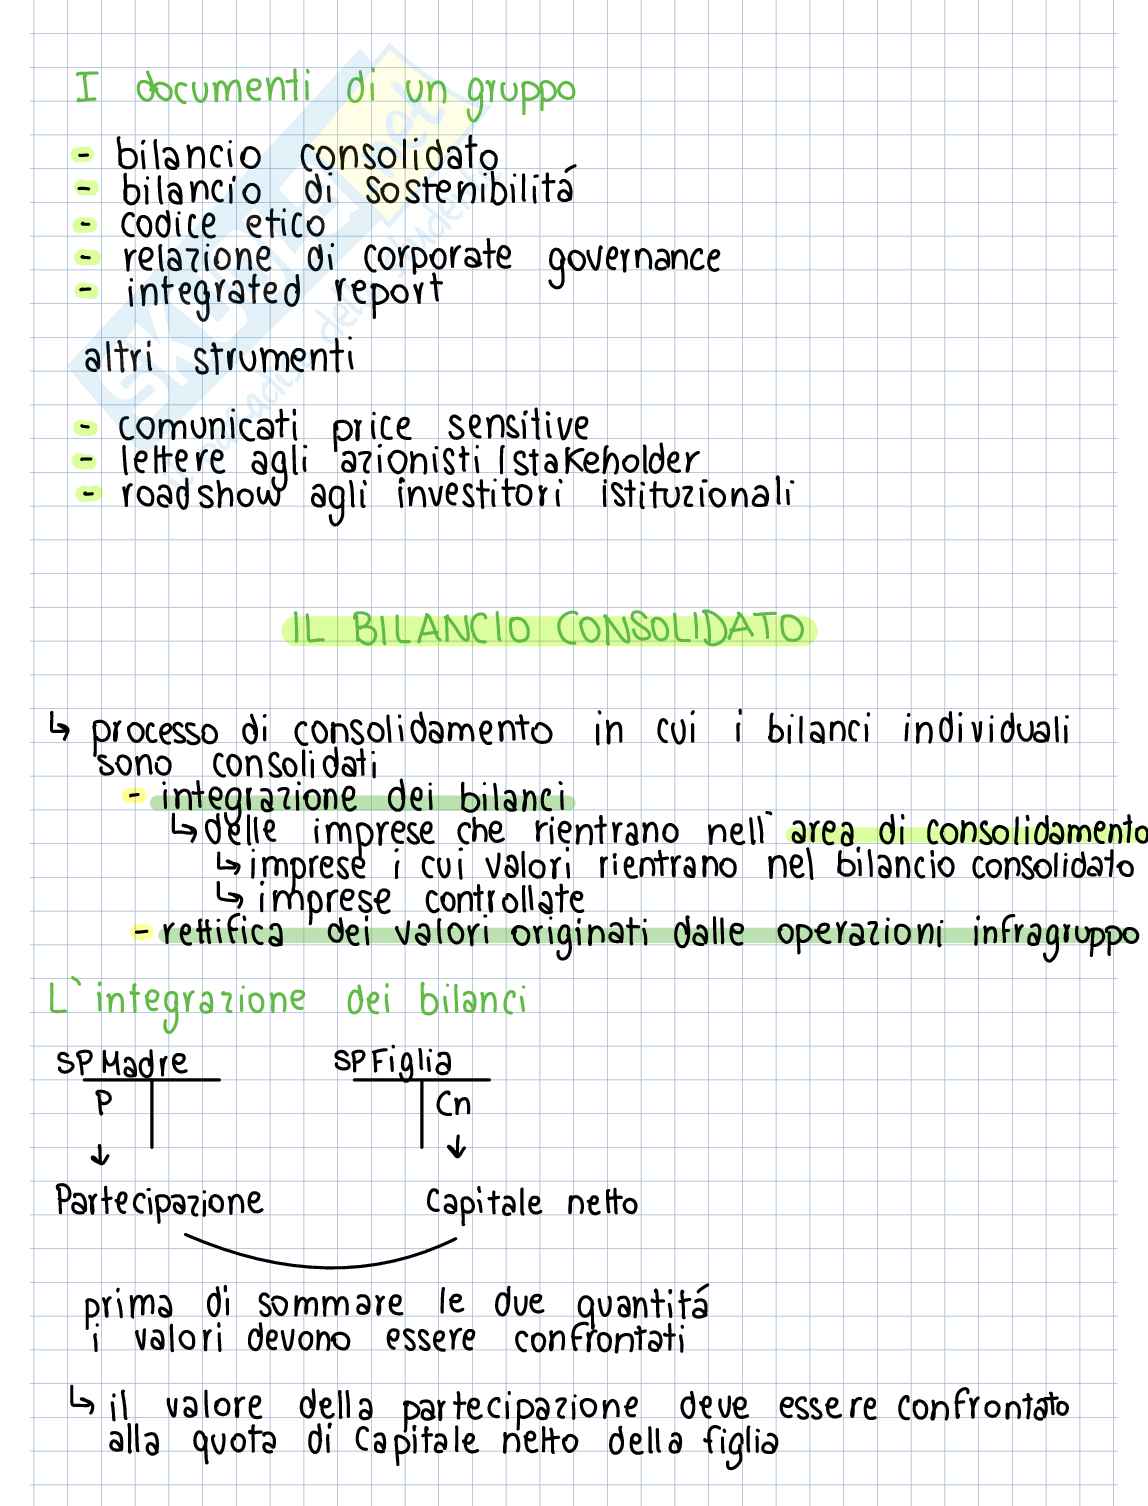 I documenti di un gruppo
- bilancio consolidato
- bilancio di sostenibilitá
- codice etico
- relazione di corporate governance
- integrated report
altri strumenti
- comunicati price sensitive
- lettere agli azionisti / stakeholder
- roadshow agli investitori istituzionali
IL BILANCIO CONSOLIDATO
↳ processo di consolidamento in cui i bilanci individuali
sono consolidati
- integrazione dei bilanci
↳ delle imprese che rientrano nell' area di consolidamento
↳ imprese i cui valori rientrano nel bilancio consolidato
↳ imprese controllate
- rettifica dei valori originati dalle operazioni infragruppo
L'integrazione dei bilanci
SP Madre SP Figlia
P Cn
↓ ↓
Partecipazione Capitale netto
prima di sommare le due quantitá
i valori devono essere confrontati
↳ il valore della partecipazione deve essere confrontato
alla quota di Capitale netto della figlia